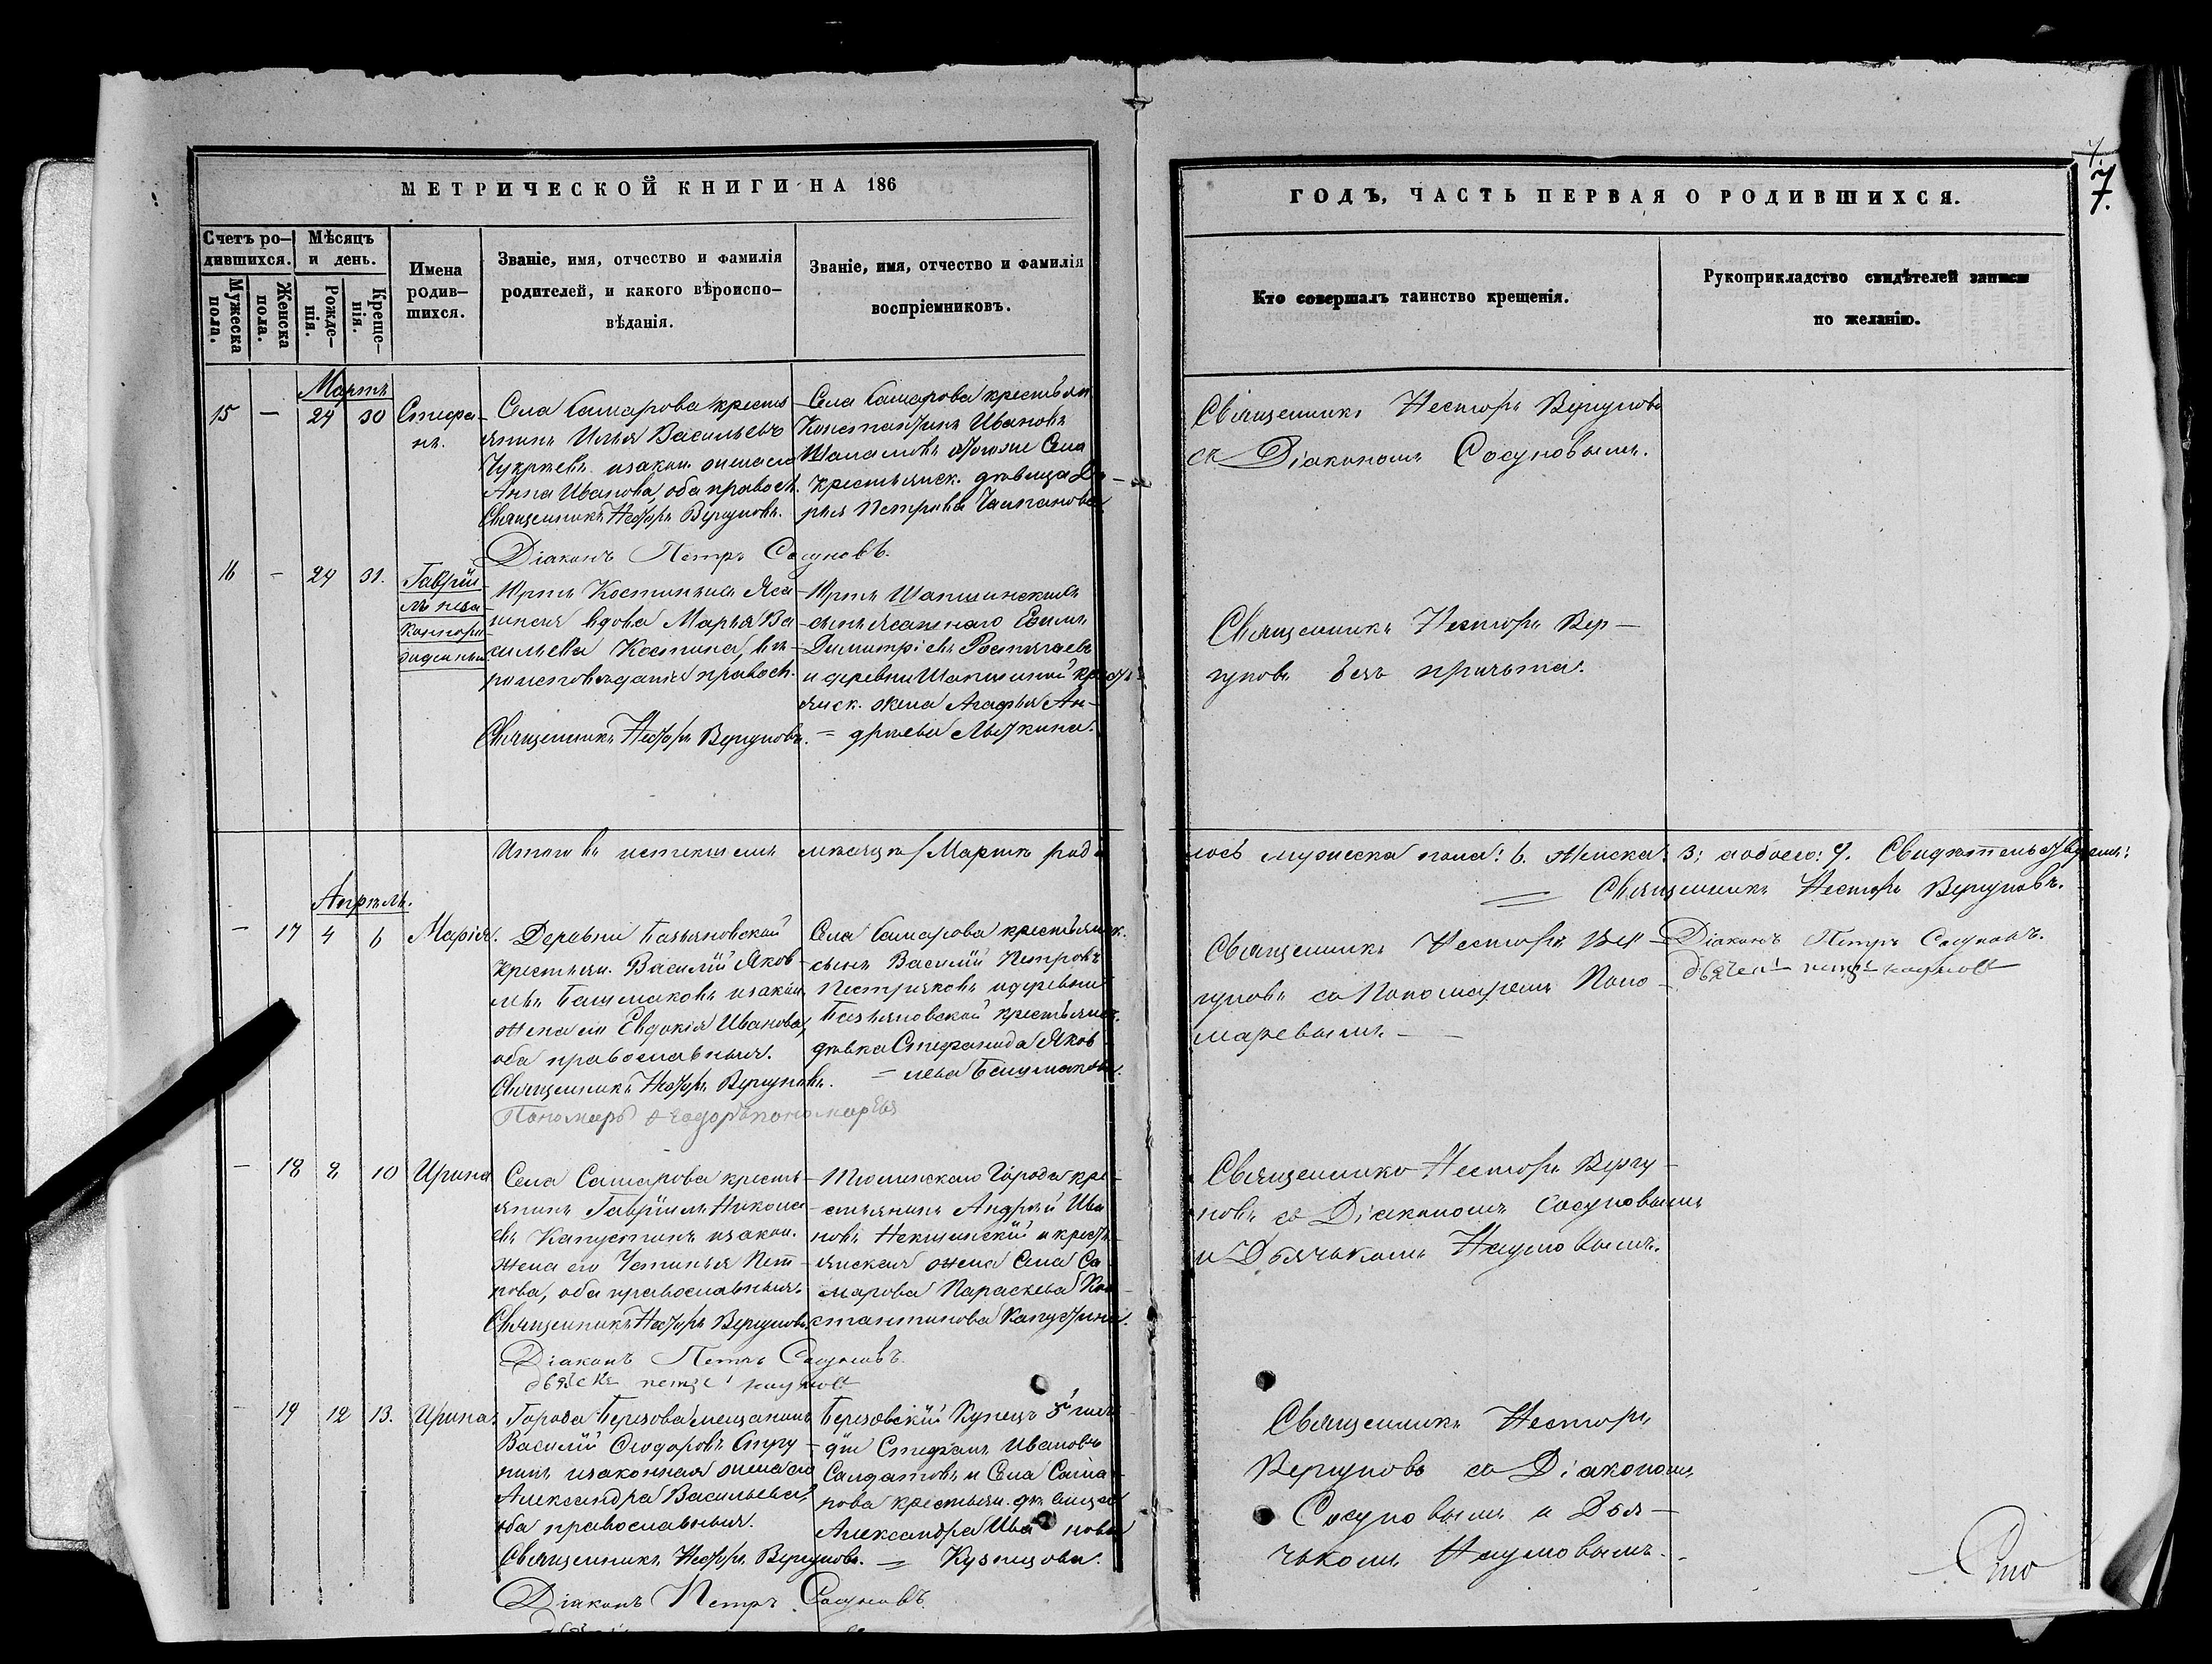 МЕТРИЧЕСКОЙ КНИГИ НА 186
ГОДЪ, ЧАСТЬ ПЕРВАЯ О РОДИВШИХСЯ.
7.
7.
Счетъ ро-
дившихся.
Мужеска
пола.
Женска
пола.
Мѣсяцъ
и день.
Рожде-
нія.
Креще-
нія.
Имена
родив-
шихся.
Званіе, имя, отчество и фамилія
родителей, и какого вѣроиспо-
вѣданія.
Званіе, имя, отчество и фамилія
воспріемниковъ.
Кто совершалъ таинство крещенія.
Рукоприкладство свидѣтелей записи
по желанію.
Мартъ
15 — 24 30
Стефа-
нъ.
Села Самарова кресть
янинъ Илья Васильевъ
и закон. жена его
Анна Иванова, оба правосл.
Священникъ Несторъ Вергуновъ.
Діаконъ Петръ Сосуновъ.
Села Самарова крестьян
Константинъ Ивановъ
Шаламовъ и тогоже Села
крестьянск. дѣвица Да-
рья Петрова
Священникъ Несторъ Вергуновъ
съ Діакономъ Сосуновымъ.
16 — 24 31.
Гавріи-
лъ неза-
конноро-
жденный
Юртъ Костиныхъ Яса
шная вдова Марья Ва
сильева Костина, вѣ-
роисповѣданія правосл.
Священникъ Несторъ Вергуновъ.
Юртъ Шапшинскихъ
сынъ ясашнаго
Димитріевъ
и деревни Шапшиной крестъ-
янск. жена Агафья Ан-
= дреева Лыткина.
Священникъ Несторъ Вер-
гуновъ безъ причта.
Итого въ истекшемъ мѣсяцѣ Мартѣ роди
лось мужеска пола: 6. Женска: 3; а обоего: 9. Свидѣтельствуемъ:
= Священникъ Несторъ Вергуновъ.
Діаконъ Петръ Сосуновъ.
Апрѣль.
— 17 4 6
Марія.
Деревни Базьяновской
крестьян. Василій Яков-
левъ Башмаковъ и закон.
жена его Евдокія Иванова,
оба православныя.
Священникъ Несторъ Вергуновъ.
Пономарь Ѳеодоръ Пономаревъ
Села Самарова крестьянск.
сынъ Василій Петровъ
Пестряковъ и деревни
Базьяновской крестьянск.
дѣвка Стефанида Яков
= лева Башмакова.
Священникъ Несторъ Вер-
гуновъ со Пономаремъ Поно-
маревымъ.
— 18 8 10
Ирина
Села Самарова кресть-
янинъ Гавріилъ Никола
евъ Капустинъ и закон.
жена его Устинья Пет-
рова, оба православныя.
Священникъ Несторъ Вергуновъ.
Діаконъ Петръ Сосуновъ.
Тюменскаго Города кре-
стьянинъ Андрей Ива
новъ и кресть-
янская жена Села Са
марова Параскева Кон
стантинова Капустина.
Священникъ Несторъ Вергу-
новъ со Діакономъ Сосуновымъ
и Дьячькомъ Наумовымъ.
— 19 12 13.
Ирина.
Города Березова мещанинъ
Василій Ѳеодоровъ
и законная жена его
Александра Васильева,
оба православныя.
Священникъ Несторъ Вергуновъ.
Діаконъ Петръ Сосуновъ
Березовскій Купецъ 3й гиль-
діи Стефанъ Ивановъ
Солдатовъ и Села Сама-
рова крестьян. дѣвица
Александра Ива нова
= Кузнецова.
Священникъ Несторъ
Вергуновъ со Діакономъ
Сосуновымъ и Дья-
чькомъ Наумовымъ.